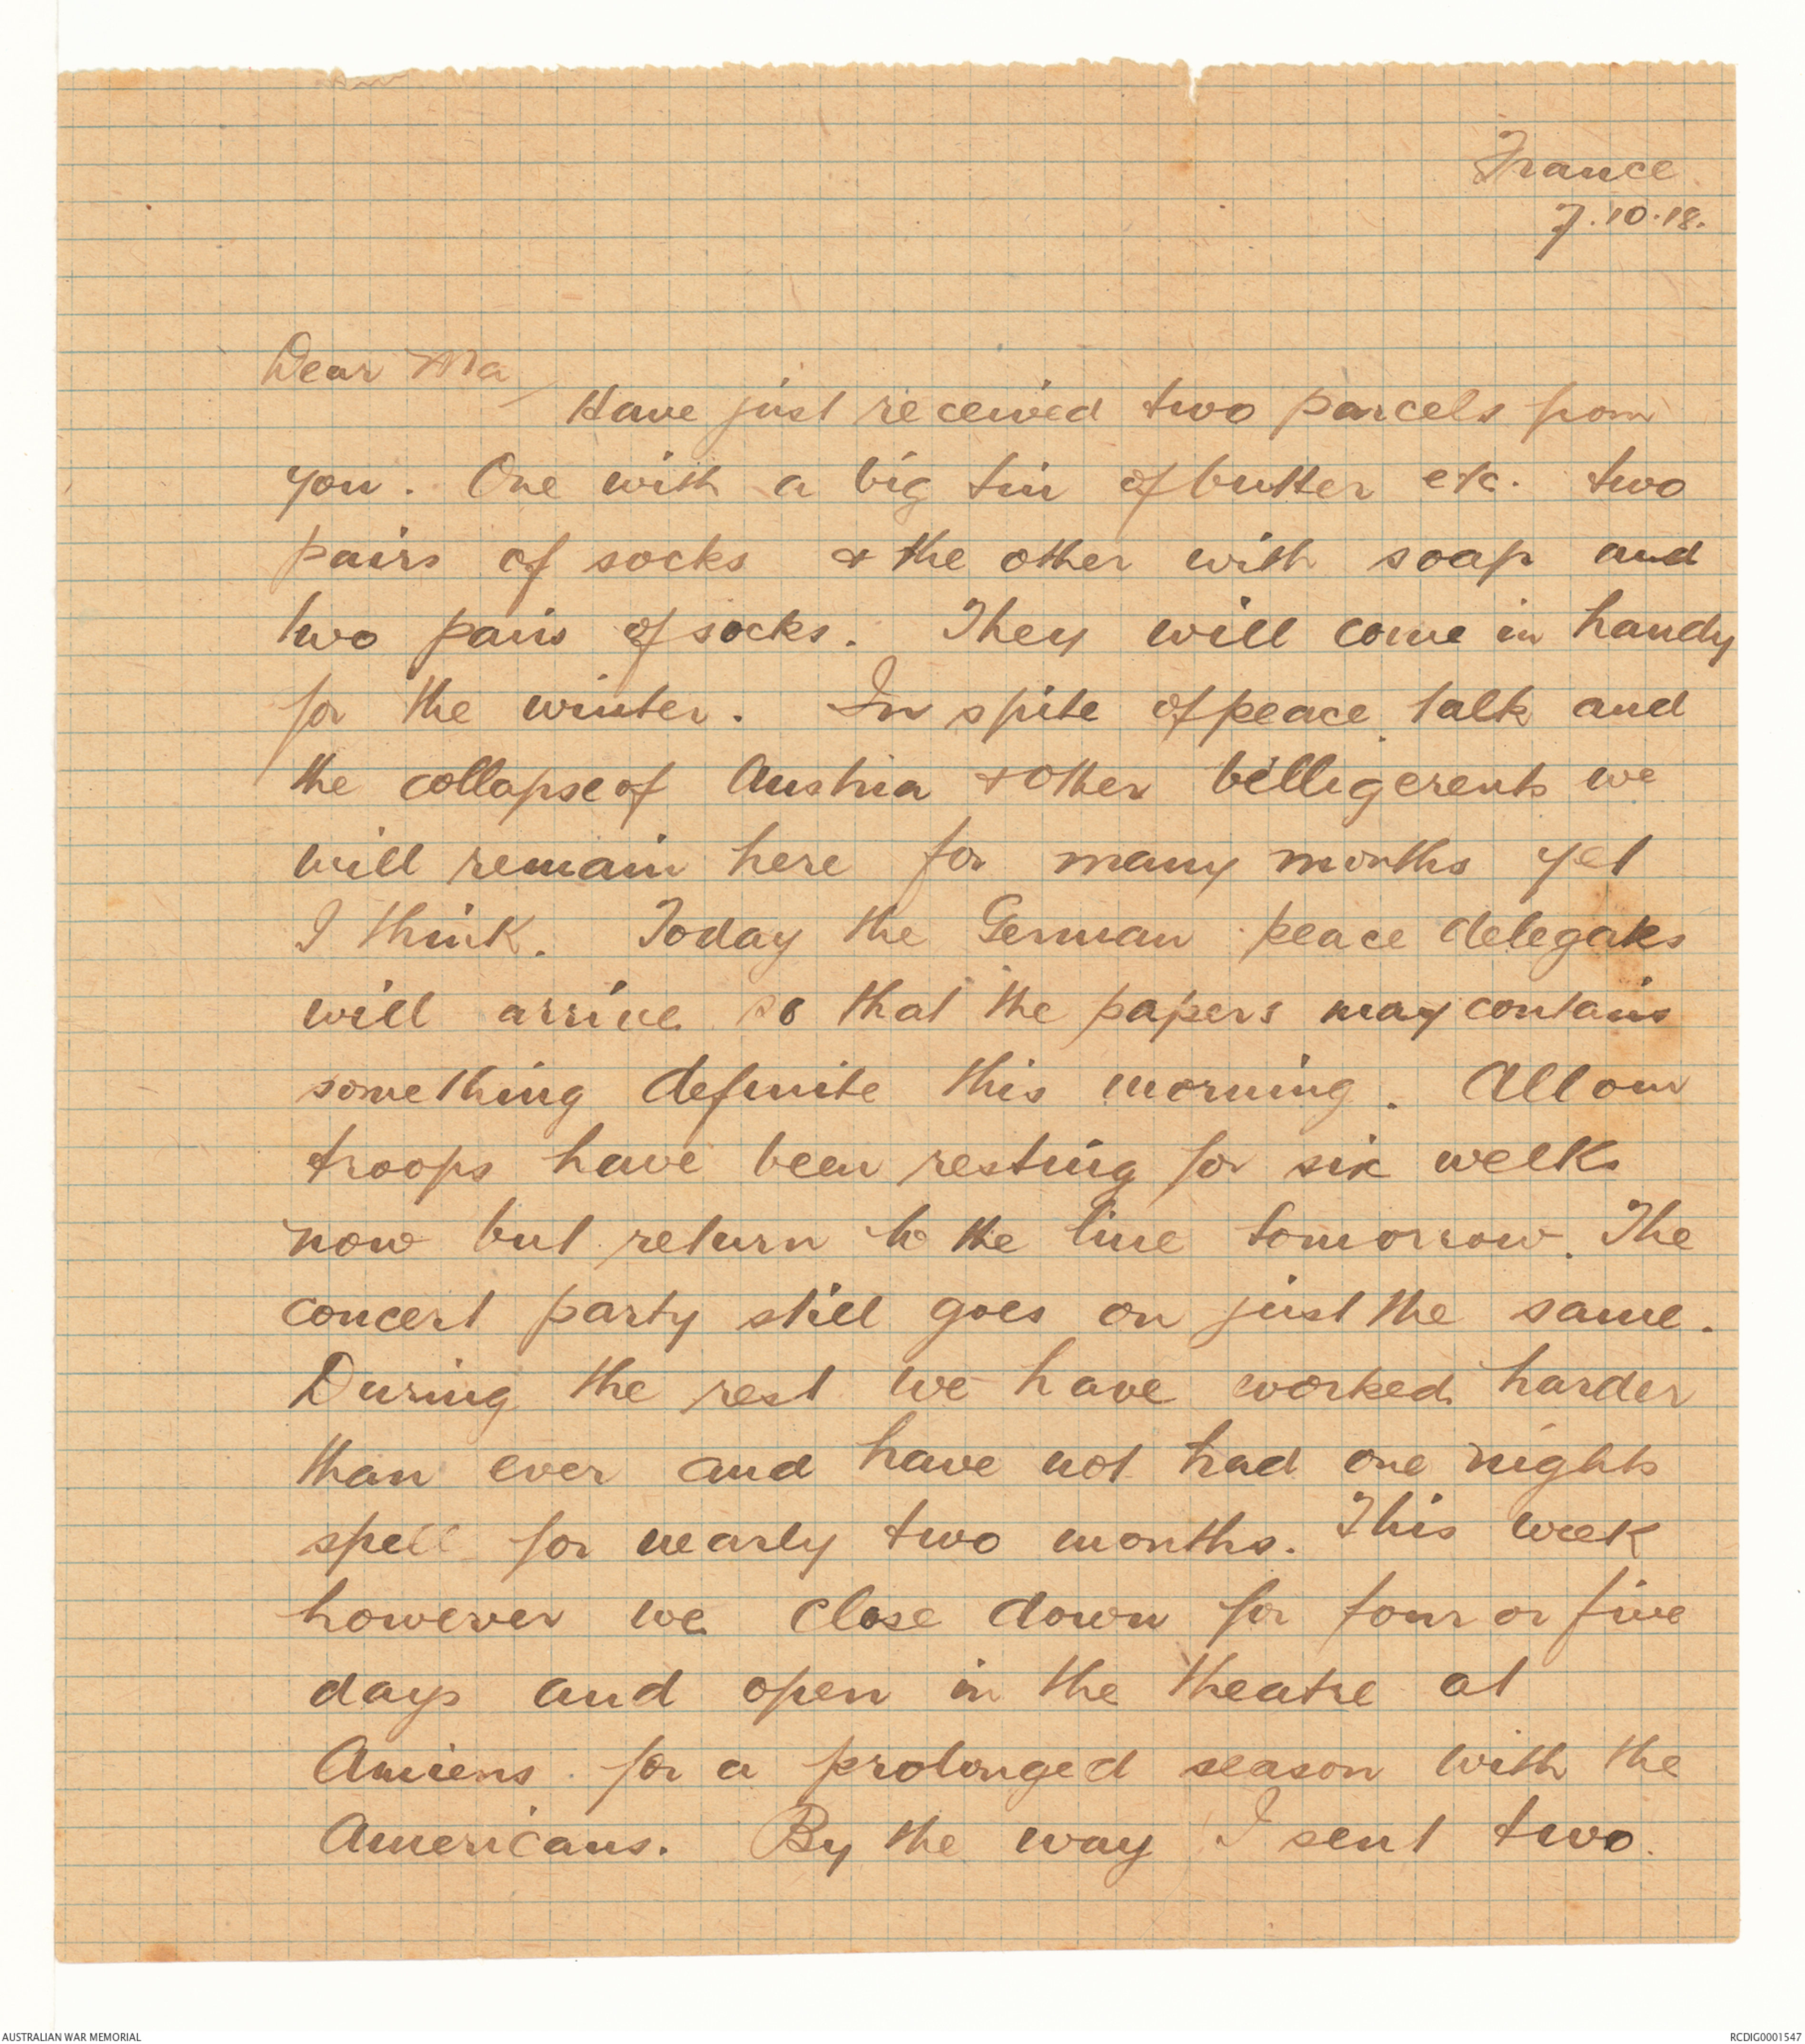 France
7.10.18.
Dear Ma
Have just received two parcels from
you. One with a big tin of butter etc. two
pairs of socks & the other with soap and
two pairs of socks. They will come in handy
for the winter. In spite of peace talk and
the collapse of Austria & other billigerents we
will remain here for many months yet
I think. Today the German peace delegates
will arrive so that the papers may contain
something definite this morning. All our
troops have been resting for six weeks
now but return to the line tomorrow. The
concert party still goes on just the same.
During the rest we have worked harder
than ever and have not had one nights
spell for nearly two months. This week
however we close down for four or five
days and open in the theatre at
Amiens for a prolonged season with the
Americans. By the way I sent two
AUSTRALIAN WAR MEMORIAL
RCDIG0001547